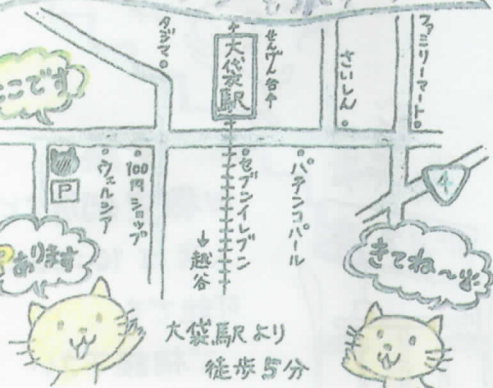 タジマ
大袋駅
せんげん台↑
さいしん
ファミリーマート
ここです
P
ウェルシア
100円ショップ
セブンイレブン
パチンコパール
4
↓越谷
あります
きてね〜
大袋駅より
徒歩5分